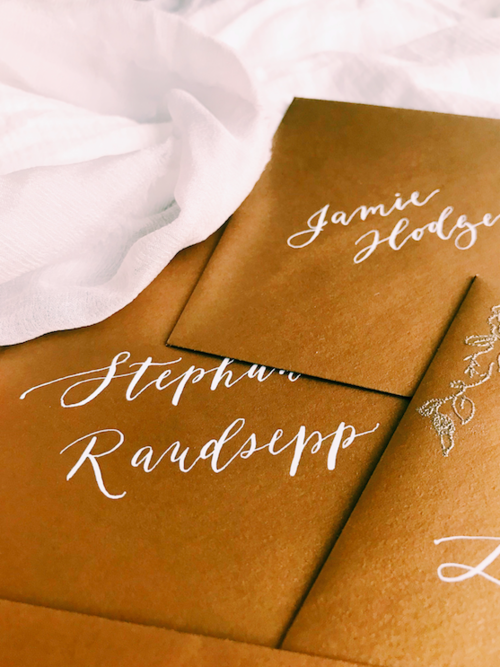 Jamie
Hodge
Stephan
Raudsepp